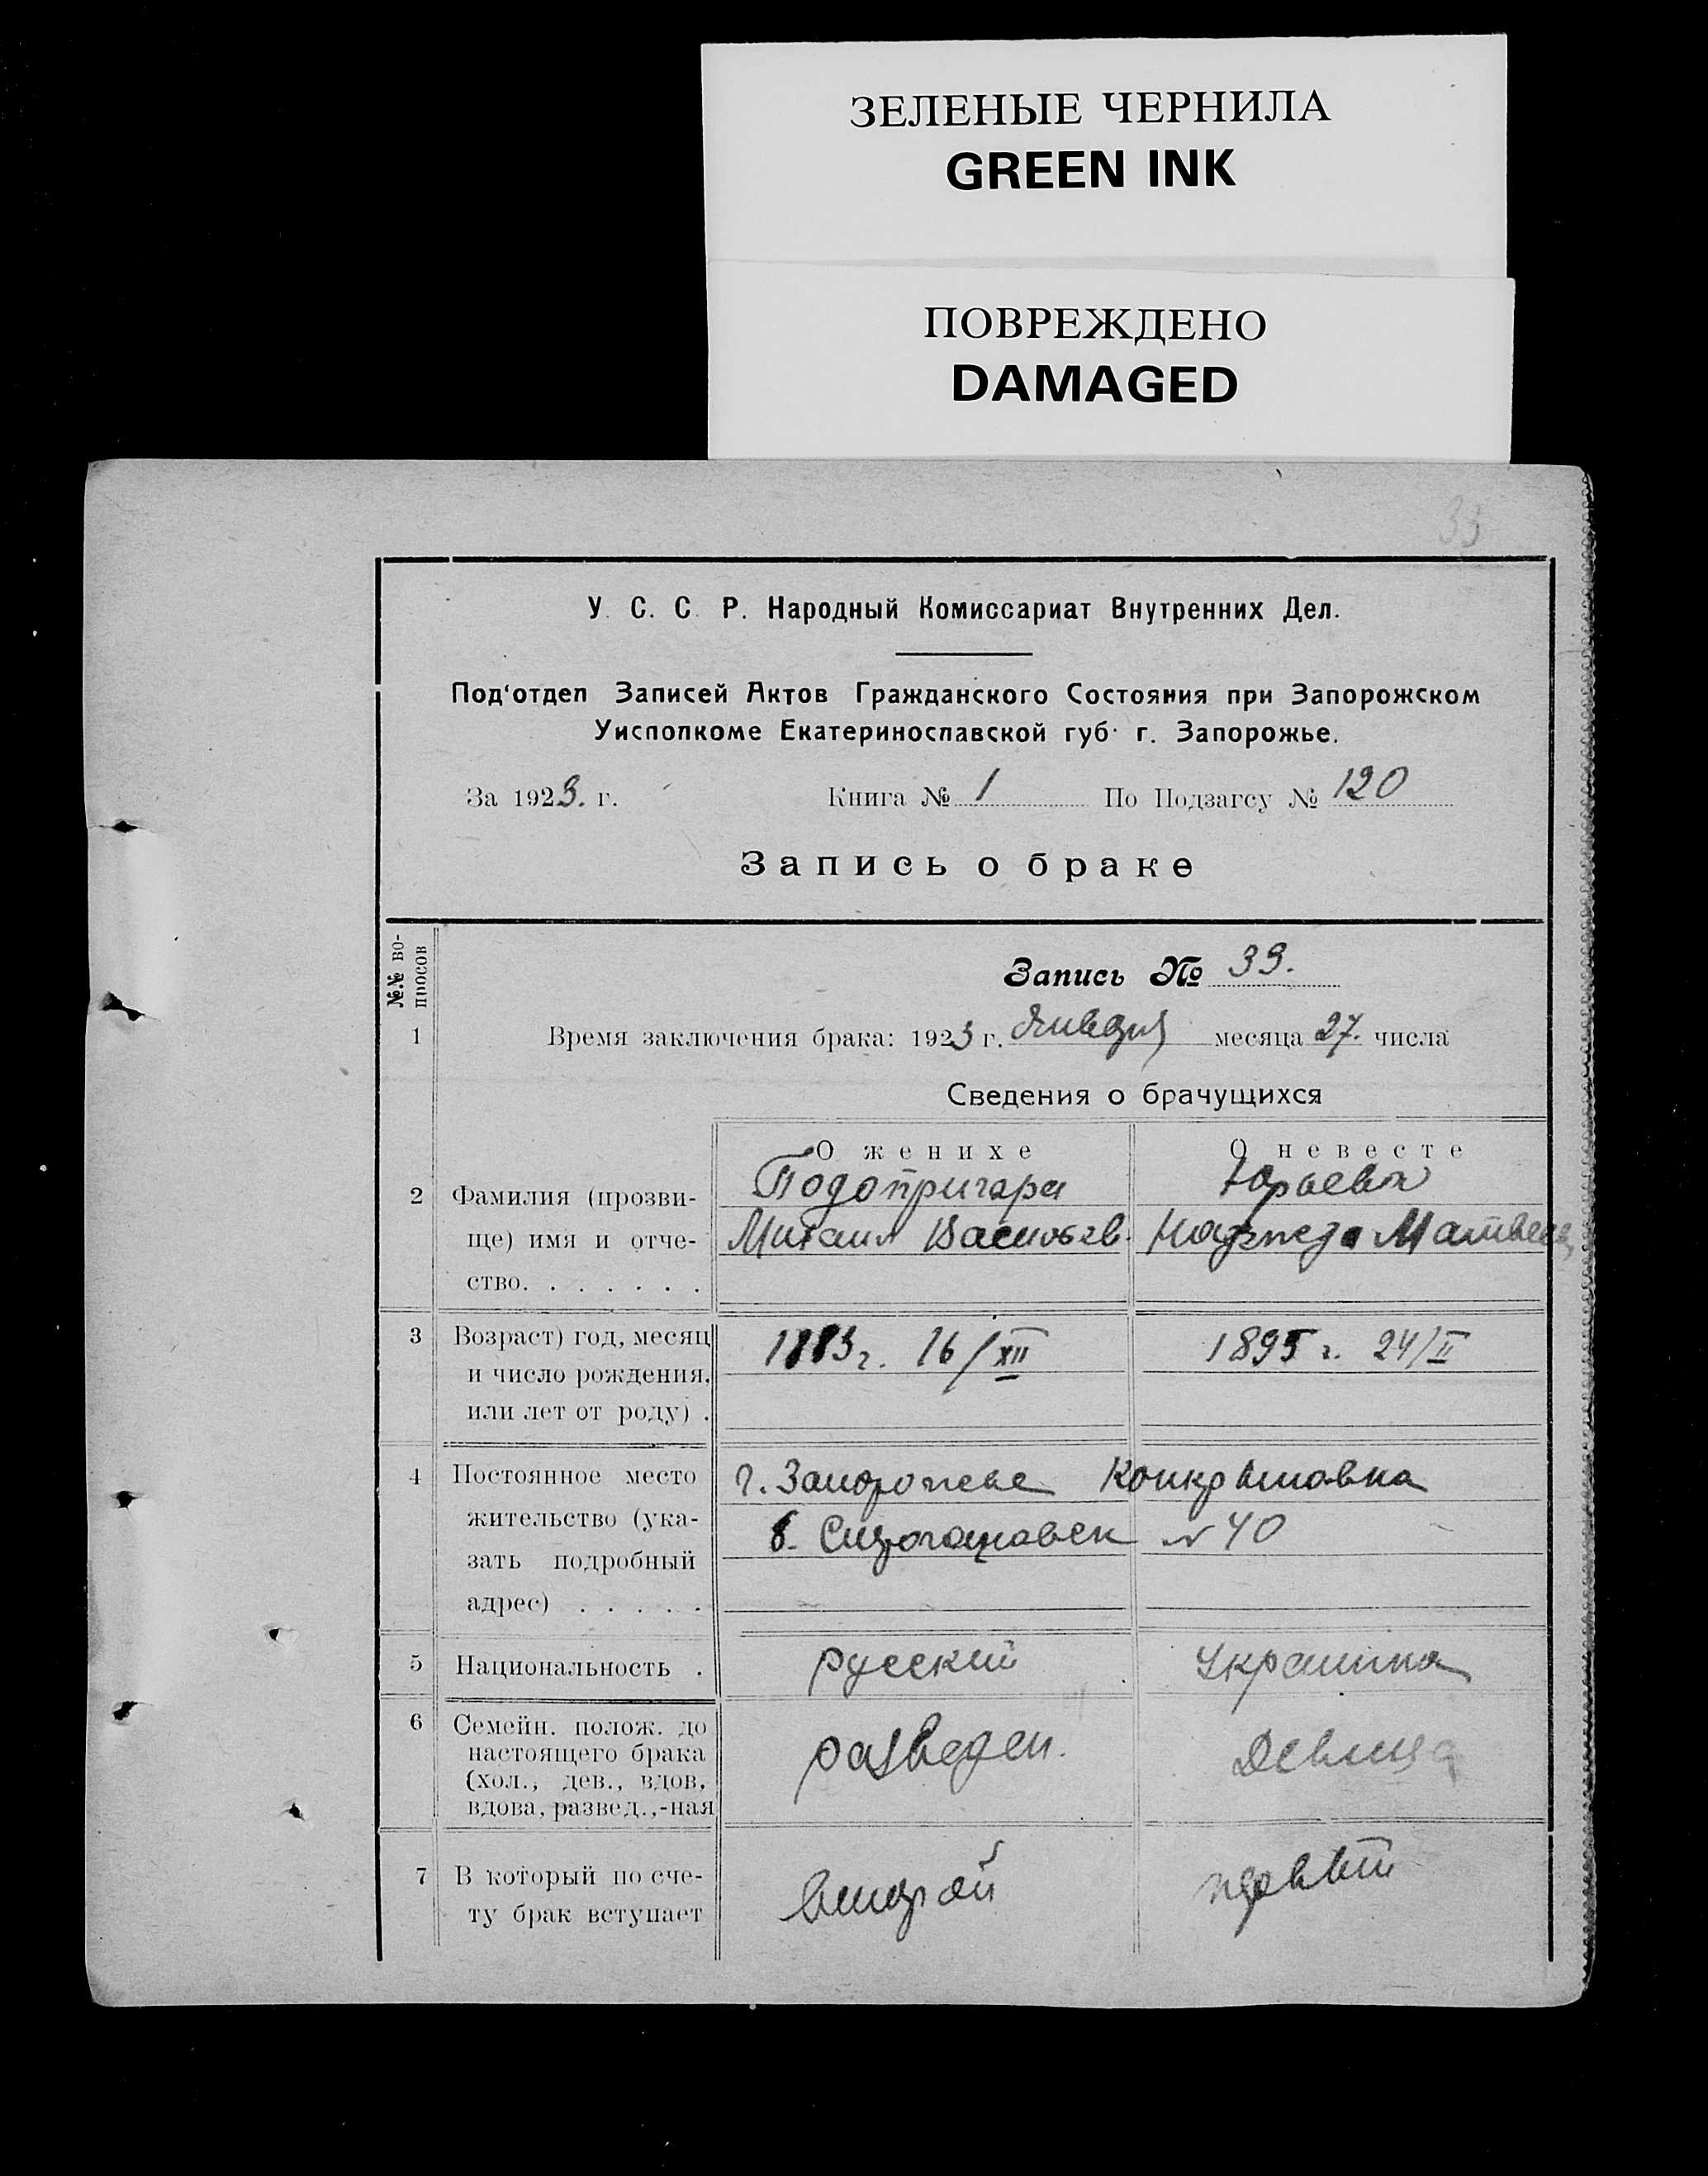 ЗЕЛЕНЫЕ ЧЕРНИЛА
GREEN INK
ПОВРЕЖДЕНО
DAMAGED
33
У. С. С. Р. Народный Комиссариат Внутренних Дел.
Под'отдел Записей Актов Гражданского Состояния при Запорожском
Уисполкоме Екатеринославской губ. г. Запорожье.
За 1923. г. Книга № 1 По Подзагсу № 120
Запись о браке
№.№ во-
просов
Запись № 33.
1 Время заключения брака: 1923 г. Января месяца 27. числа
Сведения о брачущихся
О женихе О невесте
2 Фамилия (прозви- Подопригара Юрьева
ще) имя и отче- Михаил Васильев. Надежда Матвеев
ство. . . . . . .
3 Возраст) год, месяц 1883 г. 16/XII 1895 г. 24/II
и число рождения,
или лет от роду) .
4 Постоянное место г. Запорожье
жительство (ука- б. № 40
зать подробный
адрес) . . . . .
5 Национальность . русский Украинка
6 Семейн. полож. до
настоящего брака разведен. Девица
(хол., дев., вдов,
вдова, развед.,-ная
7 В который по сче- второй первый
ту брак вступает